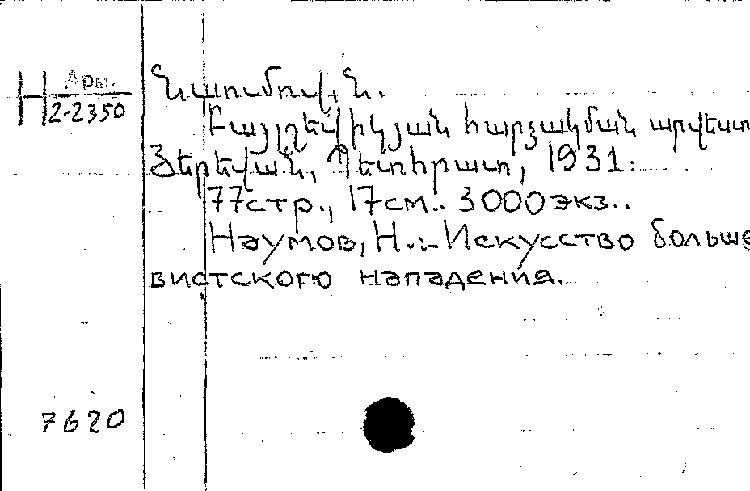 Н Арм.
2-2350
Նաումով, Ն.
Բայլշեվիկյան հարձակման արվեստ
Յերեվան, Պետհրատ, 1931.
77стр., 17см.. 3000экз..
Наумов, Н.:- Искусство больше
вистского нападения.
7620